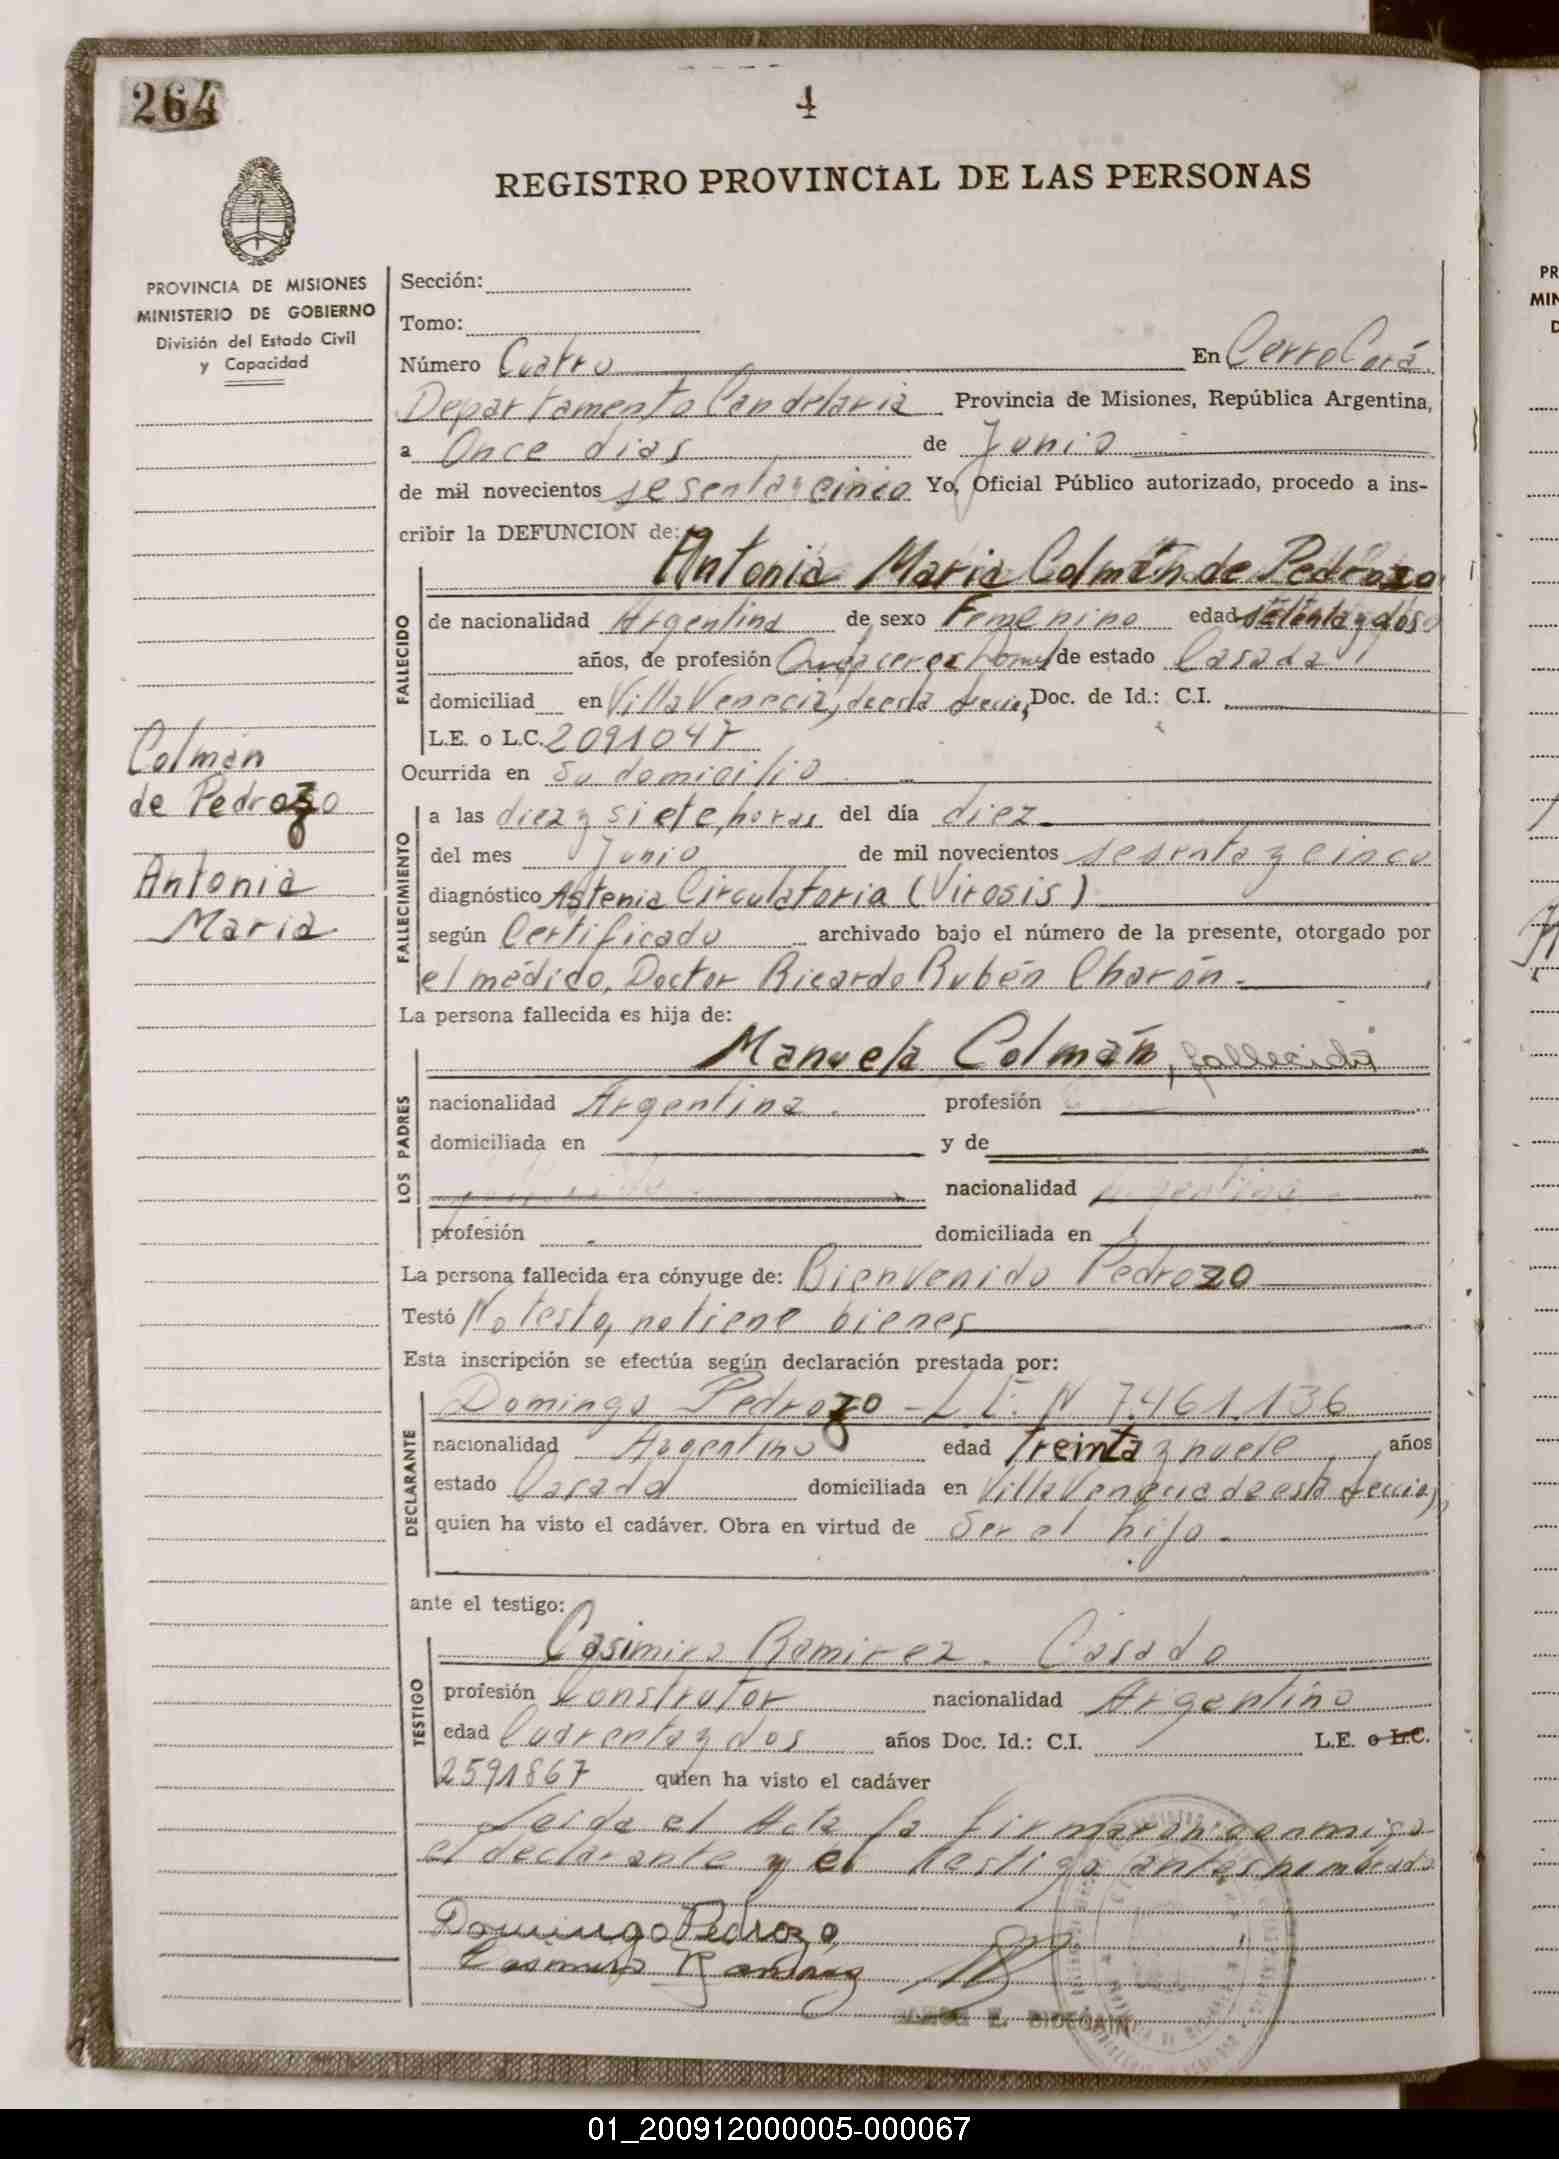 264
4
REGISTRO PROVINCIAL DE LAS PERSONAS
PROVINCIA DE MISIONES
MINISTERIO DE GOBIERNO
División del Estado Civil
y Capacidad
Colmán
de Pedrozo
Antonia
Maria
Sección:
Tomo:
Número Cuatro En Cerro Corá
Departamento Candelaria Provincia de Misiones, República Argentina,
a Once dias de Junio
de mil novecientos sesenta y cinco Yo, Oficial Público autorizado, procedo a ins-
cribir la DEFUNCION de:
Antonia Maria Colmán de Pedrozo
FALLECIDO
de nacionalidad Argentina de sexo Femenino edad setenta y dos
años, de profesión de estado Casada
domiciliad en Villa Venecia, de esta Doc. de Id.: C.I.
L.E. o L.C. 2091047
Ocurrida en Su domicilio
FALLECIMIENTO
a las diez y siete horas del día diez
del mes Junio de mil novecientos sesenta y cinco
diagnóstico Astenia Circulatoria (Virosis)
según Certificado archivado bajo el número de la presente, otorgado por
el médico, Doctor Ricardo Rubén Charón
La persona fallecida es hija de:
LOS PADRES
Manuela Colmán, fallecida
nacionalidad Argentina. profesión
domiciliada en y de
nacionalidad
profesión domiciliada en
La persona fallecida era cónyuge de: Bienvenido Pedrozo
Testó No testo, no tiene bienes
Esta inscripción se efectúa según declaración prestada por:
DECLARANTE
Domingo Pedrozo - L.E. N 7.461.136
nacionalidad Argentino edad treinta y nueve años
estado Casado domiciliada en Villa Venecia de esta
quien ha visto el cadáver. Obra en virtud de Ser el hijo.
ante el testigo:
TESTIGO
Casimiro Ramirez. Casado
profesión Construtor nacionalidad Argentino
edad Cuarenta y dos años Doc. Id.: C.I. L.E. o L.C.
2591867 quien ha visto el cadáver
Leida el Acta la firmaron conmigo
el declarante y el testigo antes nombrado
Domingo Pedrozo
Casimiro Ramirez
E. BIDEGAIN
01_200912000005-000067